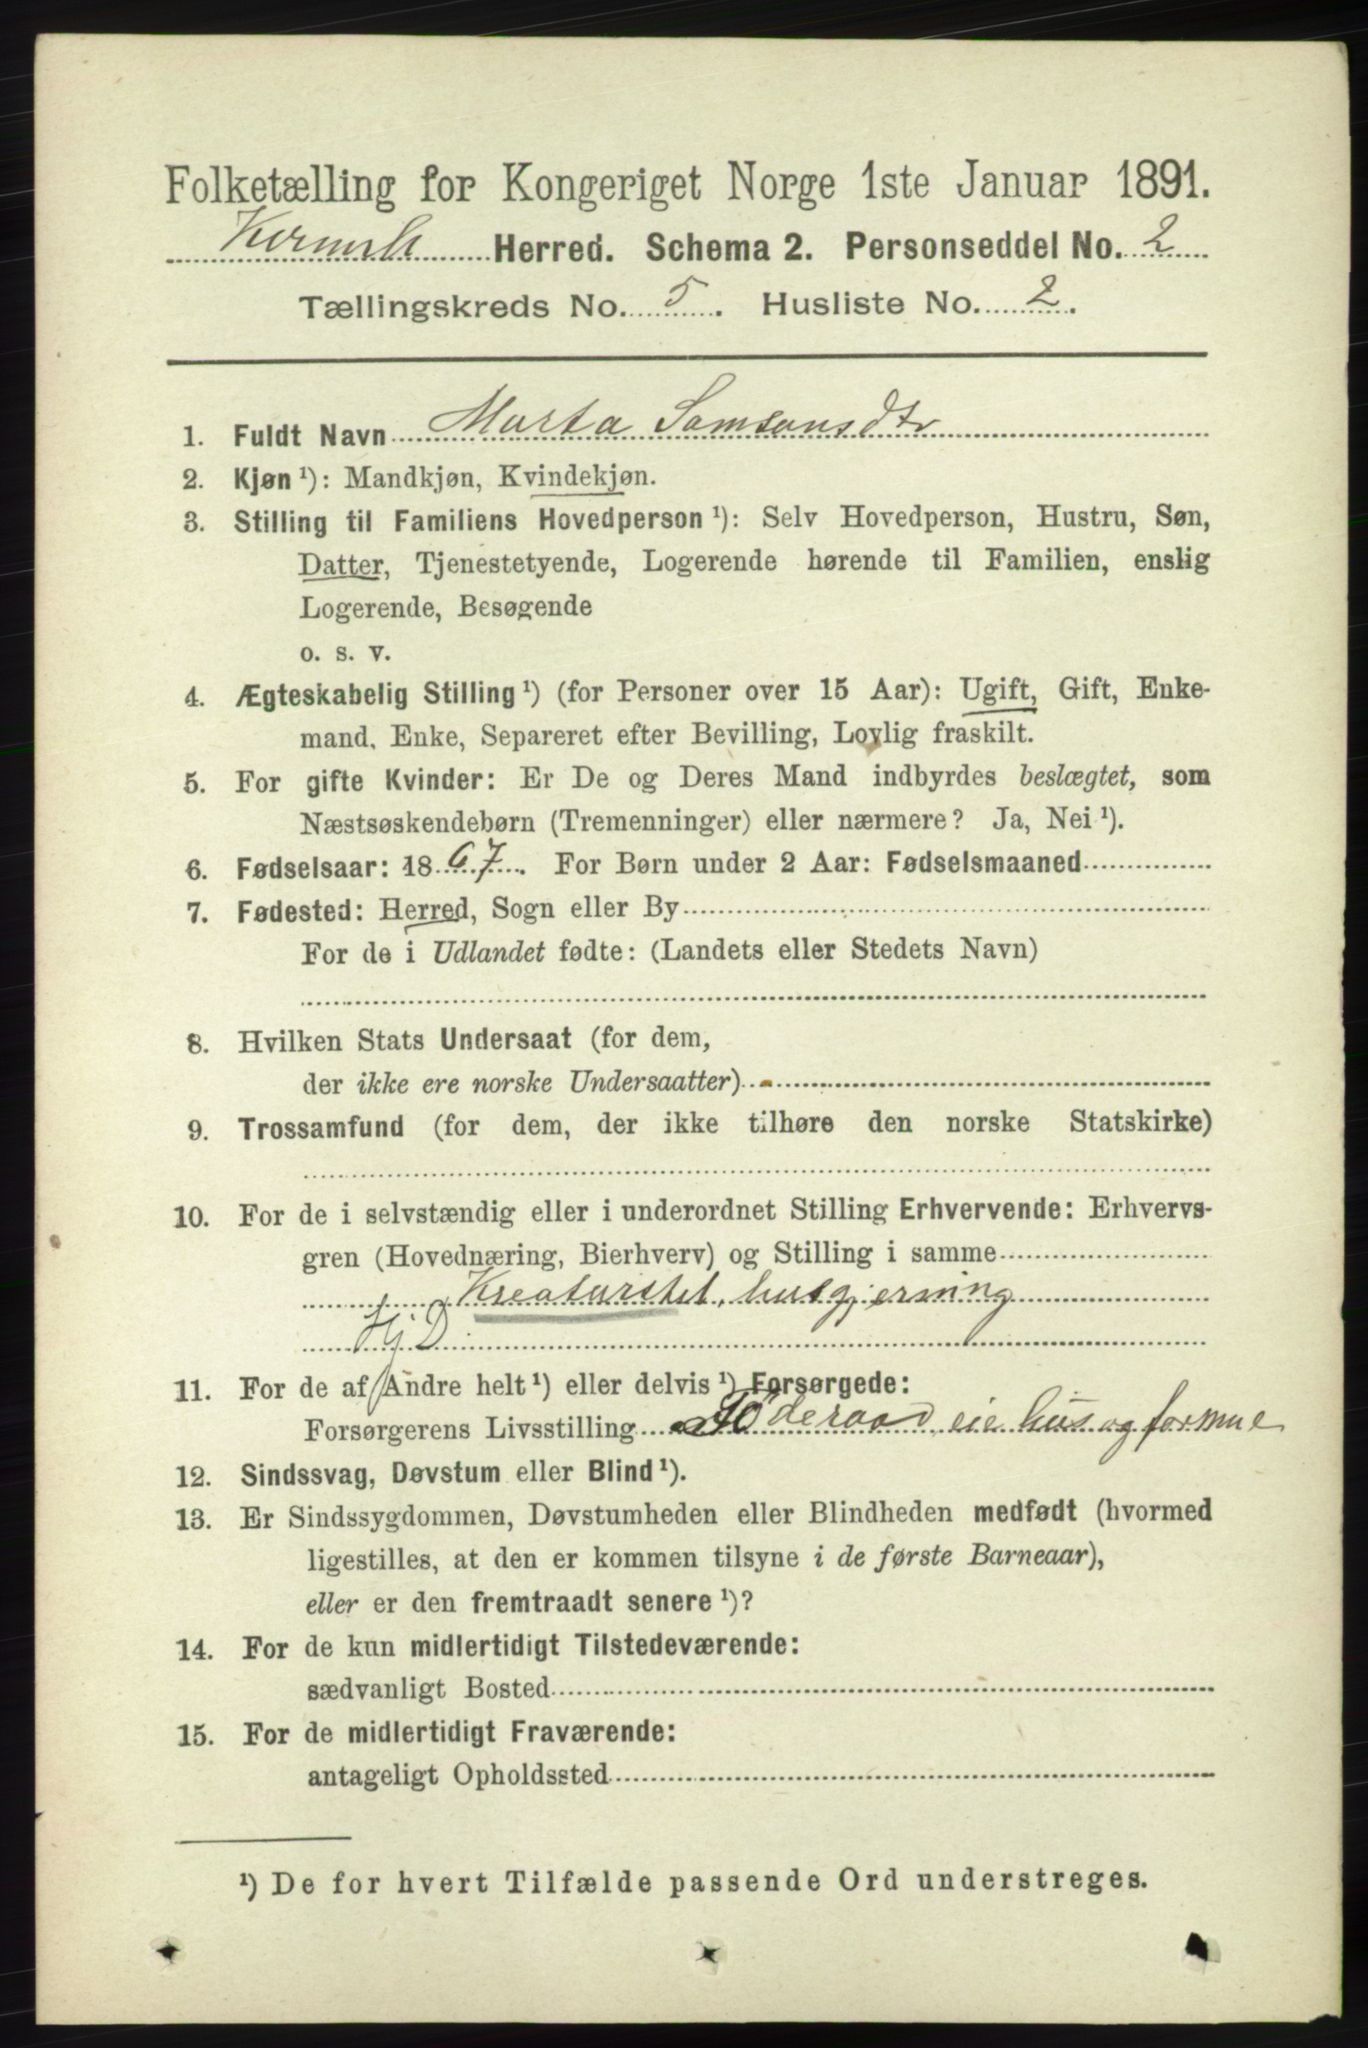 Folketælling for Kongeriget Norge 1ste Januar 1891.
Herred. Schema 2. Personseddel No. 2
Tællingskreds No. 5. Husliste No. 2.
1. Fuldt Navn Marta Samsonsdtr
2. Kjøn ¹): Mandkjøn, Kvindekjøn.
3. Stilling til Familiens Hovedperson ¹): Selv Hovedperson, Hustru, Søn,
Datter, Tjenestetyende, Logerende hørende til Familien, enslig
Logerende, Besøgende
o. s. v.
4. Ægteskabelig Stilling ¹) (for Personer over 15 Aar): Ugift, Gift, Enke-
mand, Enke, Separeret efter Bevilling, Lovlig fraskilt.
5. For gifte Kvinder: Er De og Deres Mand indbyrdes beslægtet, som
Næstsøskendebørn (Tremenninger) eller nærmere? Ja, Nei ¹).
6. Fødselsaar: 1867. For Børn under 2 Aar: Fødselsmaaned
7. Fødested: Herred, Sogn eller By
For de i Udlandet fødte: (Landets eller Stedets Navn)
8. Hvilken Stats Undersaat (for dem,
der ikke ere norske Undersaatter)
9. Trossamfund (for dem, der ikke tilhøre den norske Statskirke)
10. For de i selvstændig eller i underordnet Stilling Erhvervende: Erhvervs-
gren (Hovednæring, Bierhverv) og Stilling i samme
Kreaturstel, husgjerning
Hj D
11. For de af Andre helt ¹) eller delvis ¹) Forsørgede:
Forsørgerens Livsstilling Föderaad, eie hus og formue
12. Sindssvag, Døvstum eller Blind ¹).
13. Er Sindssygdommen, Døvstumheden eller Blindheden medfødt (hvormed
ligestilles, at den er kommen tilsyne i de første Barneaar),
eller er den fremtraadt senere ¹)?
14. For de kun midlertidigt Tilstedeværende:
sædvanligt Bosted
15. For de midlertidigt Fraværende:
antageligt Opholdssted
¹) De for hvert Tilfælde passende Ord understreges.